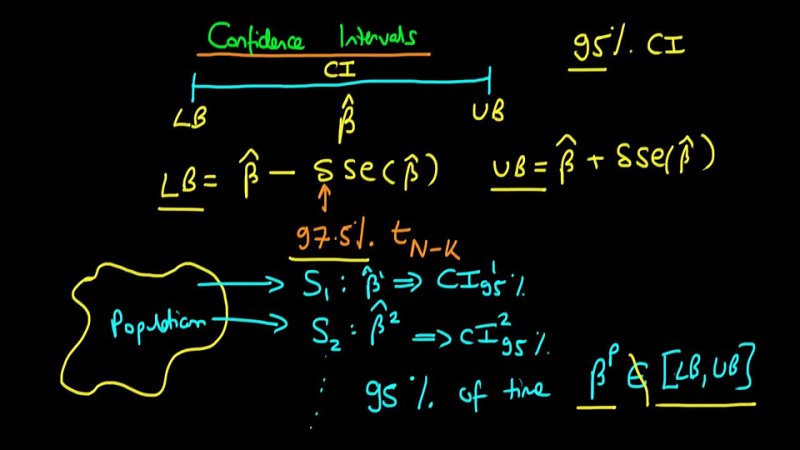 Confidence Intervals
95% CI
CI
LB β̂ UB
LB = β̂ − δ se(β̂) UB = β̂ + δ se(β̂)
97.5% t_{N-K}
S₁ : β̂¹ ⇒ CI¹₉₅%
Population
S₂ : β̂² ⇒ CI²₉₅%
95% of time βᵖ ∈ [LB, UB]